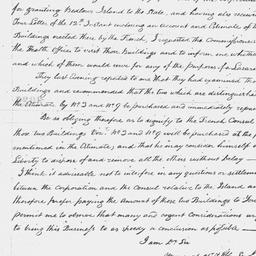 for granting Bedlows Island to the State, and having also recei
Your Letter of the 12th Instant inclosing an account and Estimate of
Buildings erected there by the French, I requested the Commissioners
the Health Office to visit these Buildings and to inform me whether
and which of them would serve for any of the purposes of a Lazare
They last Evening reported to me that they had examined the
Buildings and recommended that the two which are distinguished
the Estimate by No 3 and No 9 be purchased and immediately repa
Be so obliging therefore as to signify to the French Consul
those two Buildings Viz. No 3 and No 9 will be purchased at the p
mentioned in the Estimate; and that he may consider himself at
Liberty to dispose of and remove all the others without Delay
I think it advisable not to interfere in any questions or settleme
between the Corporation and the Consul relative to the Island an
therefore prefer paying the Amount of those two Buildings to
permit me to observe that many and urgent Considerations
to bring this Business to as speedy a conclusion as possible
I am Dr Sir